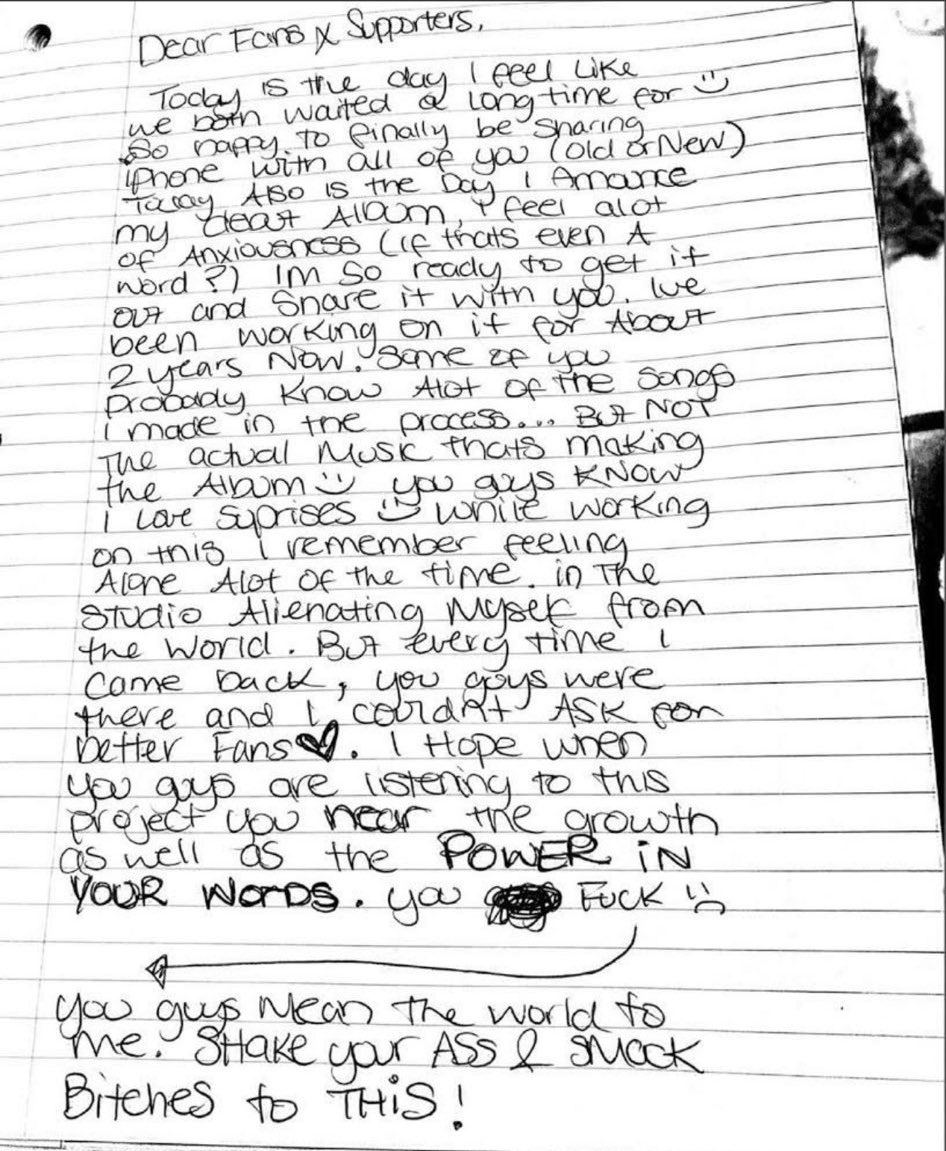 Dear Fans x Supporters,
Today is the day I feel like
we both waited a long time for :)
So happy to finally be sharing
iPhone with all of you (old or New)
Today Also is the Day I Annouce
my debut Album, I feel alot
of Anxiousness (if thats even A
word?) Im So ready to get it
out and Share it with you. Ive
been working on it for About
2 years Now. Some of you
probably know Alot of the songs
i made in the process... But NOT
The actual Music thats making
the Album :) you guys KNOW
i Love Suprises :) While working
on this I remember feeling
Alone Alot of the time. in The
Studio Alienating Myself from
the World. But every time I
came back, you guys were
there and I couldn't ASK for
better Fans♥. I Hope when
you guys are listening to this
project you hear the growth
as well as the POWER iN
YOUR WORDS. you FUCK :(
you guys Mean the world to
me. SHake your ASS & SMack
Bitches to THiS!